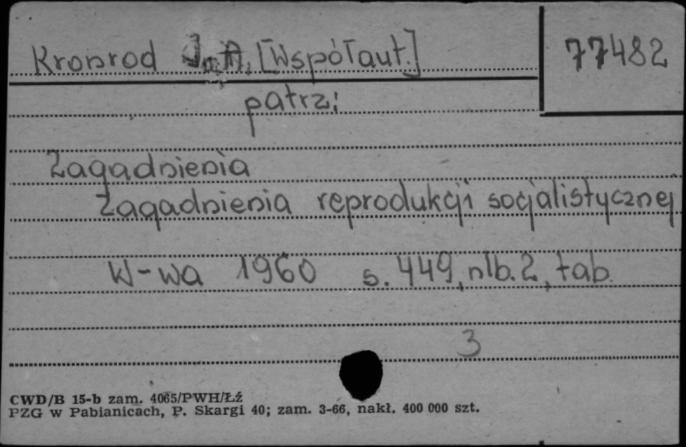 Kronrod J. A. [Współaut.]
77482
patrz:
Zagadnienia
Zagadnienia reprodukcji socjalistycznej
W-wa 1960 s. 449, nlb. 2, tab.
3
CWD/B 15-b zam. 4065/PWH/Łź
PZG w Pabianicach, P. Skargi 40; zam. 3-66, nakł. 400 000 szt.